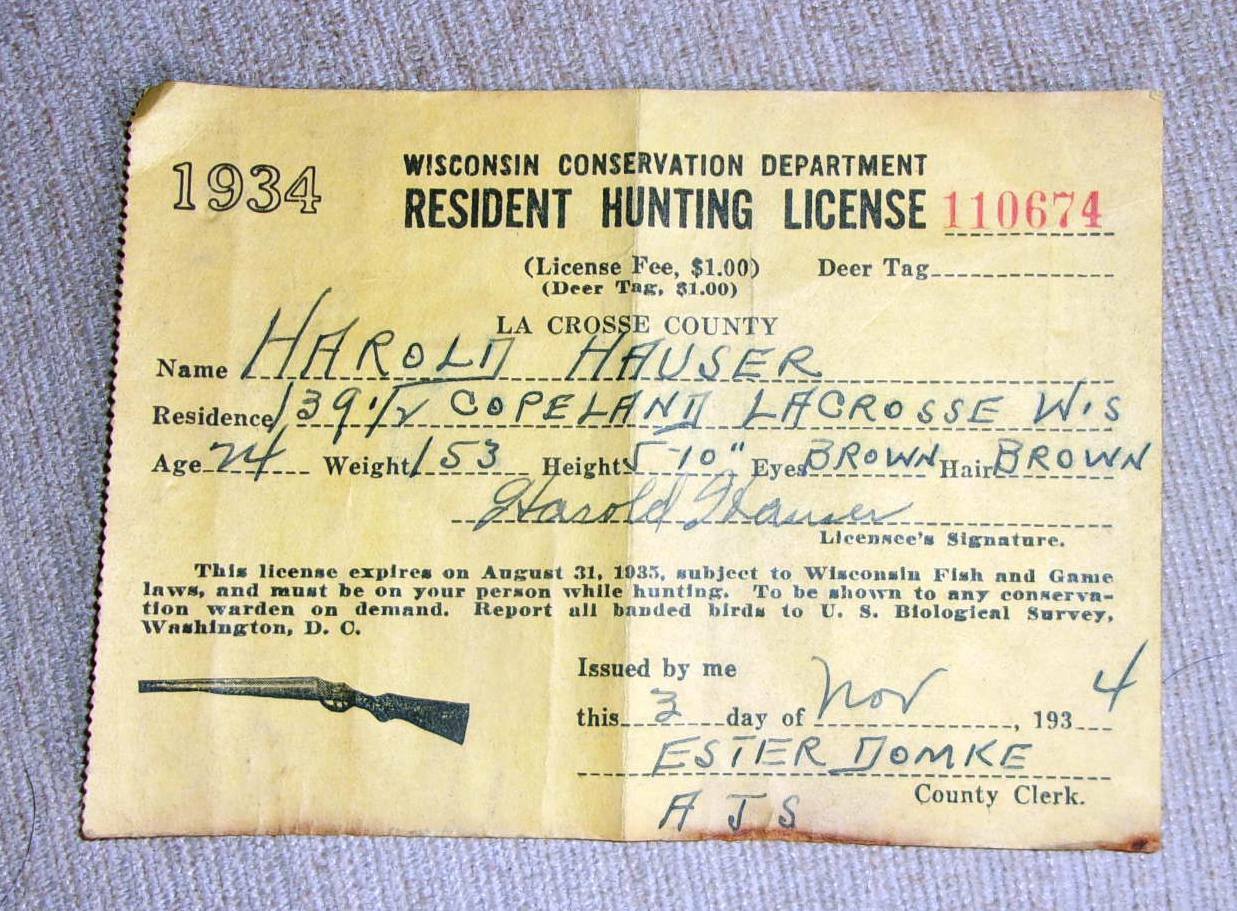 1934
WISCONSIN CONSERVATION DEPARTMENT
RESIDENT HUNTING LICENSE 110674
(License Fee, $1.00) Deer Tag
(Deer Tag, $1.00)
LA CROSSE COUNTY
Name HAROLD HAUSER
Residence 1391/2 COPELAND LACROSSE WIS
Age 24 Weight 153 Height 5-10" Eyes BROWN Hair BROWN
Harold Hauser
Licensee's Signature.
This license expires on August 31, 1935, subject to Wisconsin Fish and Game
laws, and must be on your person while hunting. To be shown to any conserva-
tion warden on demand. Report all banded birds to U. S. Biological Survey,
Washington, D. C.
Issued by me
this 3 day of Nov, 1934
ESTER DOMKE
County Clerk.
A J S